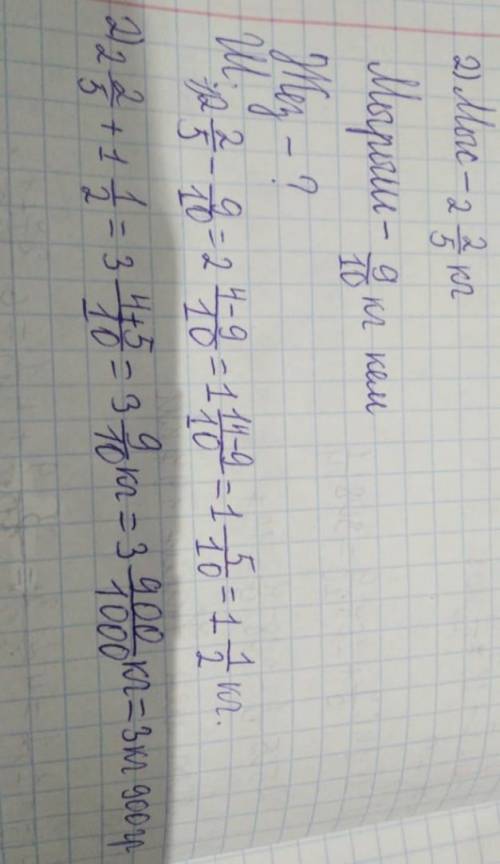 2) Мыс - 2 2/5 кг
Мырыш - 9/10 кг кем
Жез - ?
Ш. 1) 2 2/5 - 9/10 = 2 4-9/10 = 1 14-9/10 = 1 5/10 = 1 1/2 кг.
2) 2 2/5 + 1 1/2 = 3 4+5/10 = 3 9/10 кг = 3 900/1000 кг = 3 кг 900 г